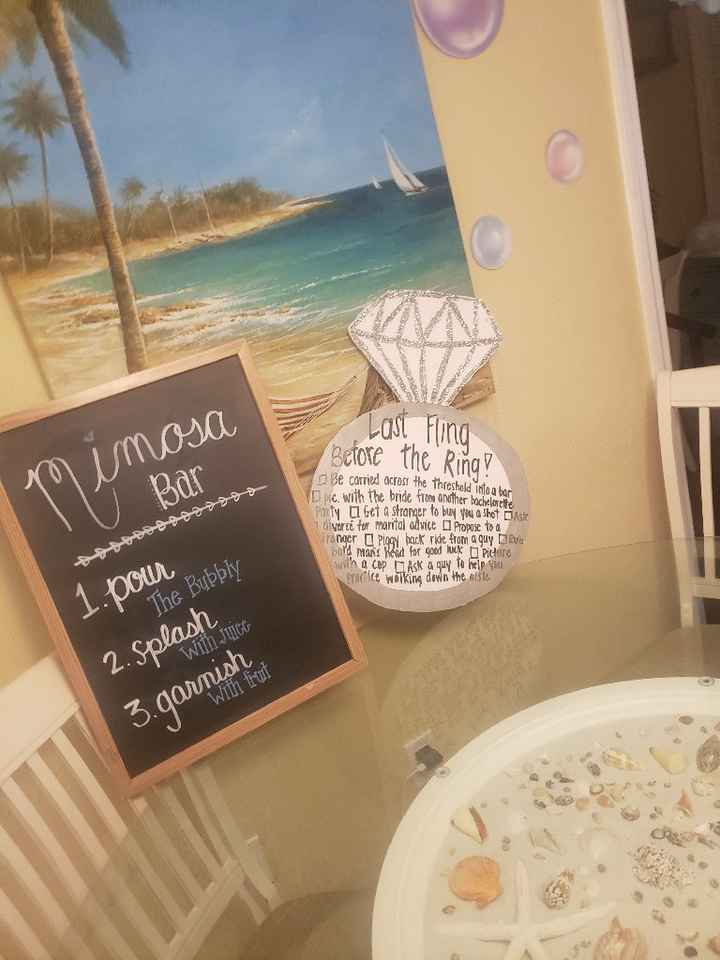 Mimosa
Bar
1. pour
The Bubbly
2. splash
with juice
3. garnish
with fruit
Last Fling
Before the Ring!
☐ Be carried across the threshold into a bar
☐ pic. with the bride from another bachelorette
Party ☐ Get a stranger to buy you a shot ☐ Ask
divorsé for marital advice ☐ Propose to a
☐ Piggy back ride from a guy ☐
bald man's head for good luck ☐ Picture
with a cop ☐ Ask a guy to help you
practice walking down the aisle